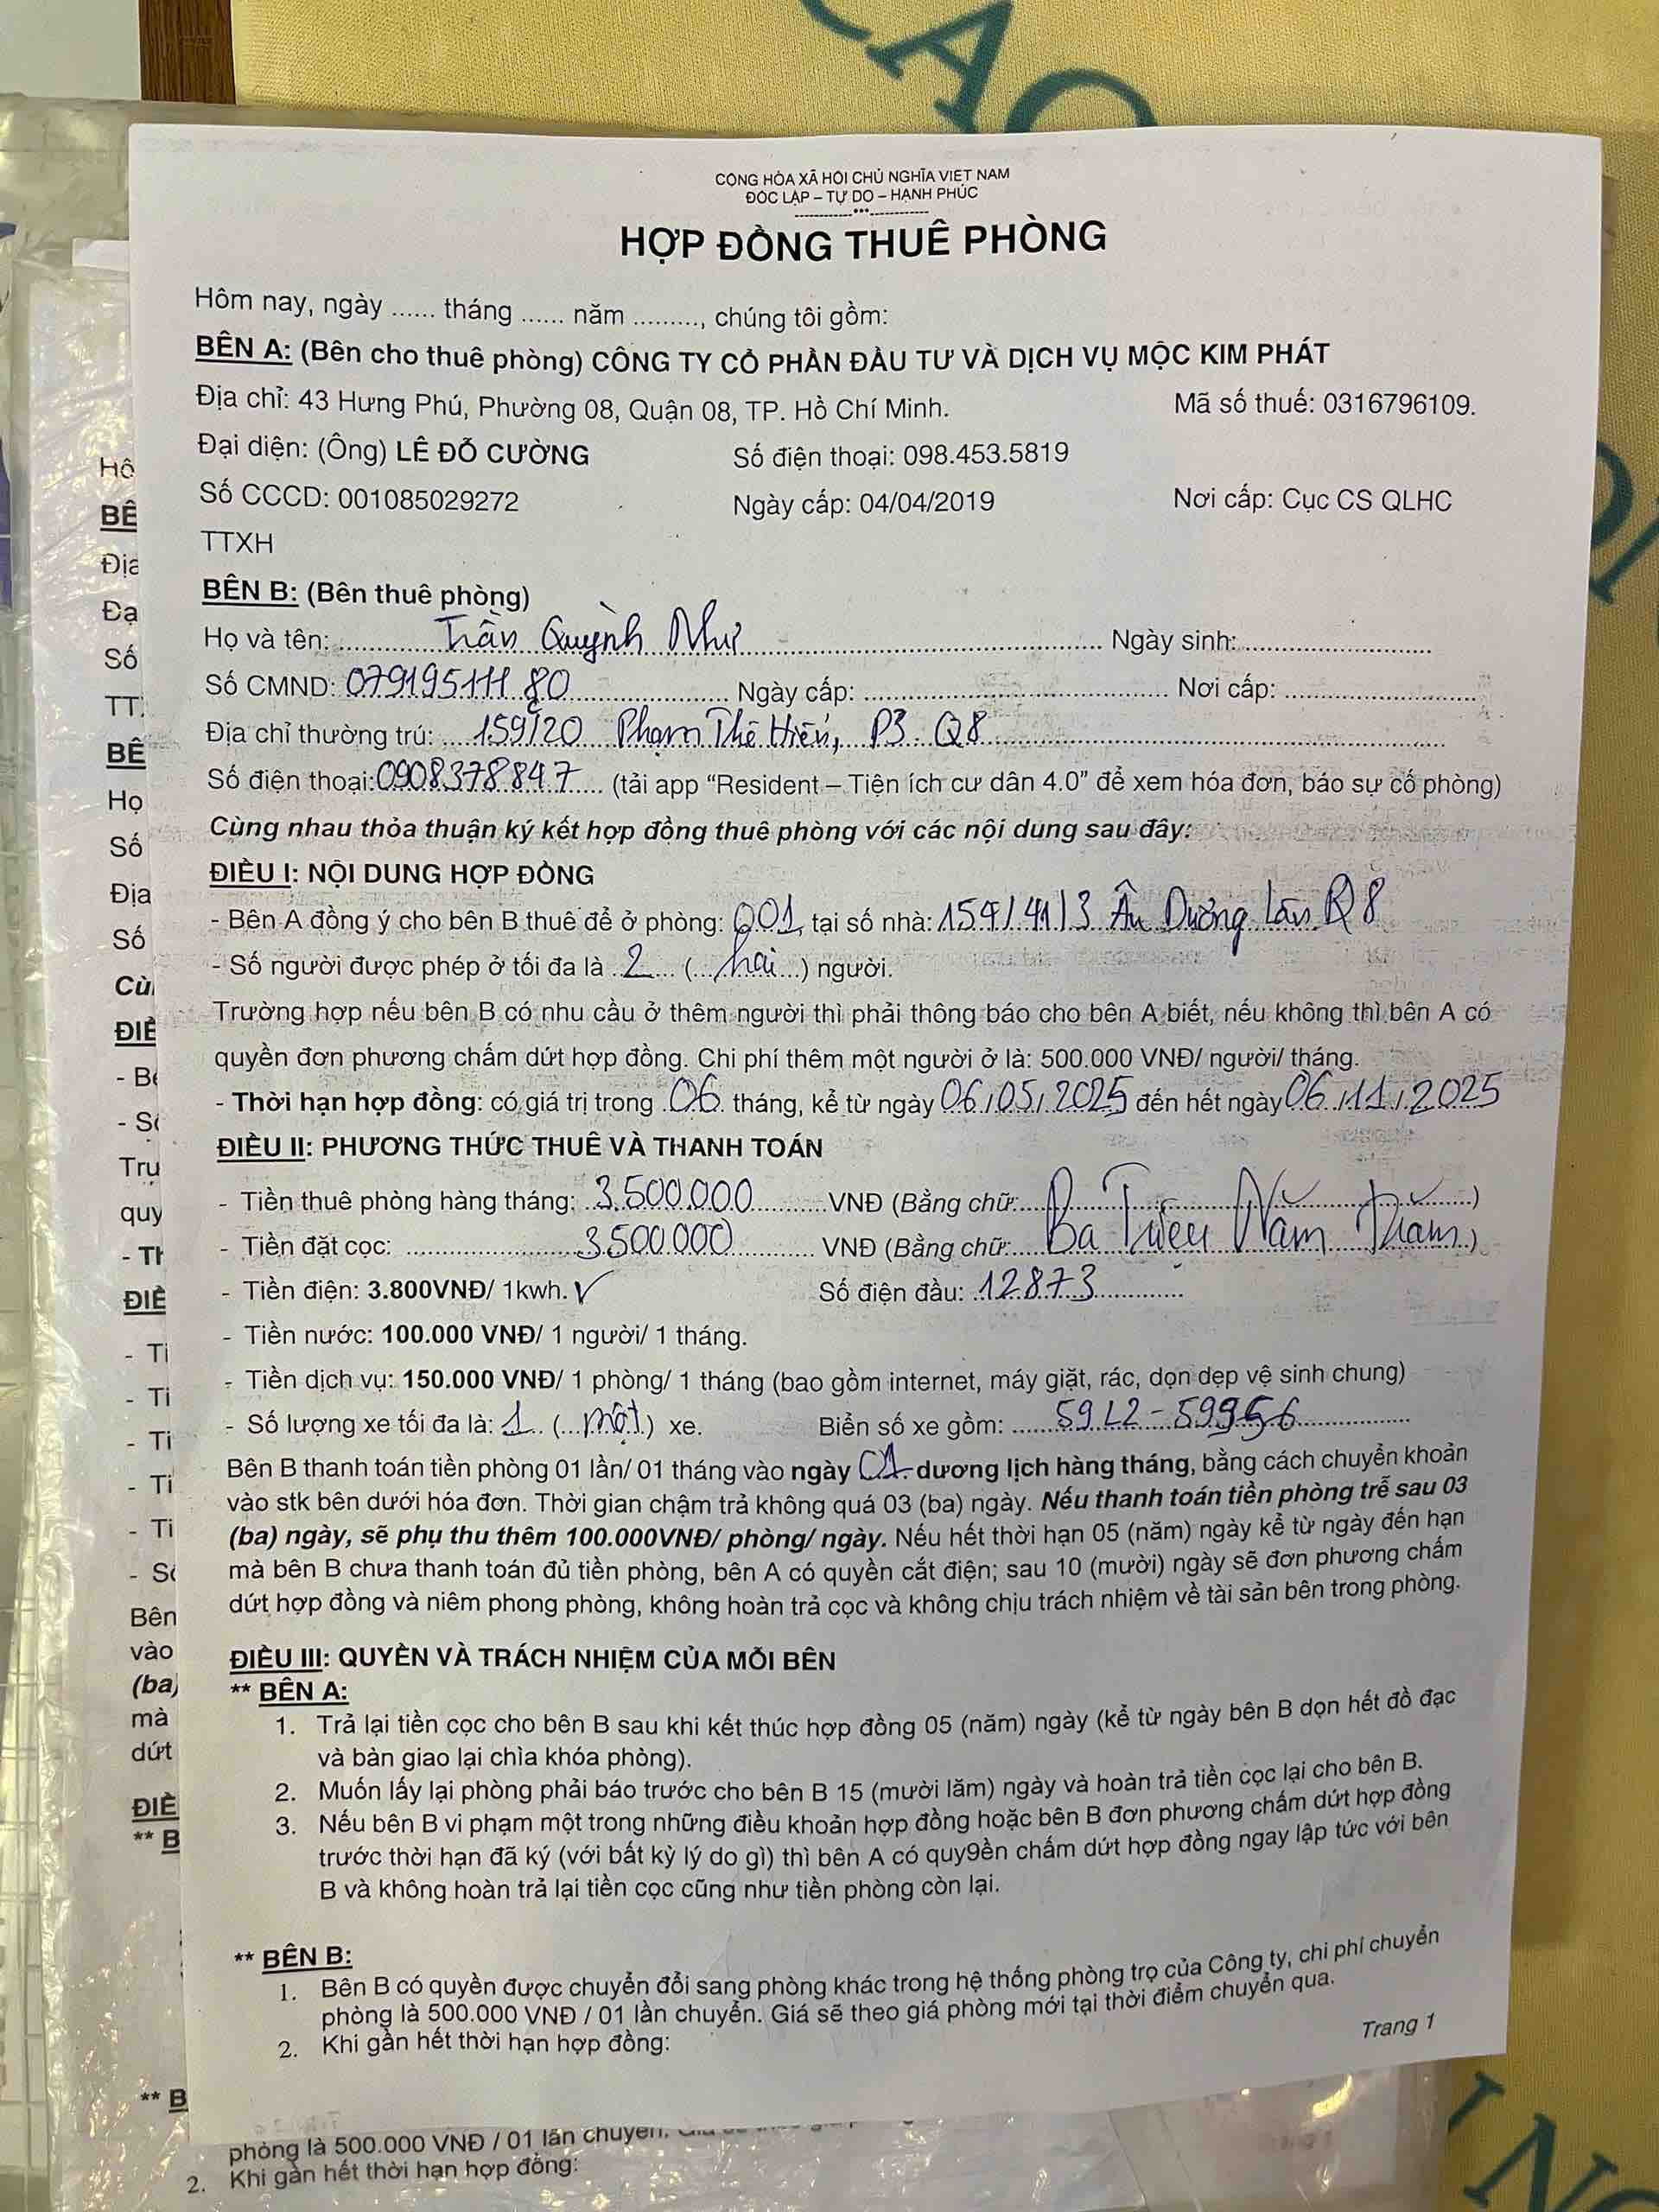 CỘNG HÒA XÃ HỘI CHỦ NGHĨA VIỆT NAM
ĐỘC LẬP – TỰ DO – HẠNH PHÚC
------------•••------------
HỢP ĐỒNG THUÊ PHÒNG
Hôm nay, ngày ...... tháng ...... năm ........., chúng tôi gồm:
BÊN A: (Bên cho thuê phòng) CÔNG TY CỔ PHẦN ĐẦU TƯ VÀ DỊCH VỤ MỘC KIM PHÁT
Địa chỉ: 43 Hưng Phú, Phường 08, Quận 08, TP. Hồ Chí Minh. Mã số thuế: 0316796109.
Đại diện: (Ông) LÊ ĐỖ CƯỜNG Số điện thoại: 098.453.5819
Số CCCD: 001085029272 Ngày cấp: 04/04/2019 Nơi cấp: Cục CS QLHC
TTXH
BÊN B: (Bên thuê phòng)
Họ và tên: Trần Quỳnh Như Ngày sinh:
Số CMND: 079195111 80 Ngày cấp: Nơi cấp:
Địa chỉ thường trú: 159/20 Phạm Thế Hiển, P3. Q8
Số điện thoại: 0908378847 (tải app “Resident – Tiện ích cư dân 4.0” để xem hóa đơn, báo sự cố phòng)
Cùng nhau thỏa thuận ký kết hợp đồng thuê phòng với các nội dung sau đây:
ĐIỀU I: NỘI DUNG HỢP ĐỒNG
- Bên A đồng ý cho bên B thuê để ở phòng: 001, tại số nhà: 154/41/3 Âu Dương Lân Q8
- Số người được phép ở tối đa là 2 (hai) người.
Trường hợp nếu bên B có nhu cầu ở thêm người thì phải thông báo cho bên A biết, nếu không thì bên A có
quyền đơn phương chấm dứt hợp đồng. Chi phí thêm một người ở là: 500.000 VNĐ/ người/ tháng.
- Thời hạn hợp đồng: có giá trị trong 06 tháng, kể từ ngày 06/05/2025 đến hết ngày 06/11/2025
ĐIỀU II: PHƯƠNG THỨC THUÊ VÀ THANH TOÁN
- Tiền thuê phòng hàng tháng: 3.500.000 VNĐ (Bằng chữ: )
- Tiền đặt cọc: 3.500.000 VNĐ (Bằng chữ: Ba Triệu Năm Trăm)
- Tiền điện: 3.800VNĐ/ 1kwh. ✓ Số điện đầu: 12873
- Tiền nước: 100.000 VNĐ/ 1 người/ 1 tháng.
- Tiền dịch vụ: 150.000 VNĐ/ 1 phòng/ 1 tháng (bao gồm internet, máy giặt, rác, dọn dẹp vệ sinh chung)
- Số lượng xe tối đa là: 1 (một) xe. Biển số xe gồm: 59L2-59956
Bên B thanh toán tiền phòng 01 lần/ 01 tháng vào ngày 01 dương lịch hàng tháng, bằng cách chuyển khoản
vào stk bên dưới hóa đơn. Thời gian chậm trả không quá 03 (ba) ngày. Nếu thanh toán tiền phòng trễ sau 03
(ba) ngày, sẽ phụ thu thêm 100.000VNĐ/ phòng/ ngày. Nếu hết thời hạn 05 (năm) ngày kể từ ngày đến hạn
mà bên B chưa thanh toán đủ tiền phòng, bên A có quyền cắt điện; sau 10 (mười) ngày sẽ đơn phương chấm
dứt hợp đồng và niêm phong phòng, không hoàn trả cọc và không chịu trách nhiệm về tài sản bên trong phòng.
ĐIỀU III: QUYỀN VÀ TRÁCH NHIỆM CỦA MỖI BÊN
** BÊN A:
1. Trả lại tiền cọc cho bên B sau khi kết thúc hợp đồng 05 (năm) ngày (kể từ ngày bên B dọn hết đồ đạc
và bàn giao lại chìa khóa phòng).
2. Muốn lấy lại phòng phải báo trước cho bên B 15 (mười lăm) ngày và hoàn trả tiền cọc lại cho bên B.
3. Nếu bên B vi phạm một trong những điều khoản hợp đồng hoặc bên B đơn phương chấm dứt hợp đồng
trước thời hạn đã ký (với bất kỳ lý do gì) thì bên A có quy9ền chấm dứt hợp đồng ngay lập tức với bên
B và không hoàn trả lại tiền cọc cũng như tiền phòng còn lại.
** BÊN B:
1. Bên B có quyền được chuyển đổi sang phòng khác trong hệ thống phòng trọ của Công ty, chi phí chuyển
phòng là 500.000 VNĐ / 01 lần chuyển. Giá sẽ theo giá phòng mới tại thời điểm chuyển qua.
2. Khi gần hết thời hạn hợp đồng:
Trang 1
phòng là 500.000 VNĐ / 01 lần chuyển.
2. Khi gần hết thời hạn hợp đồng: